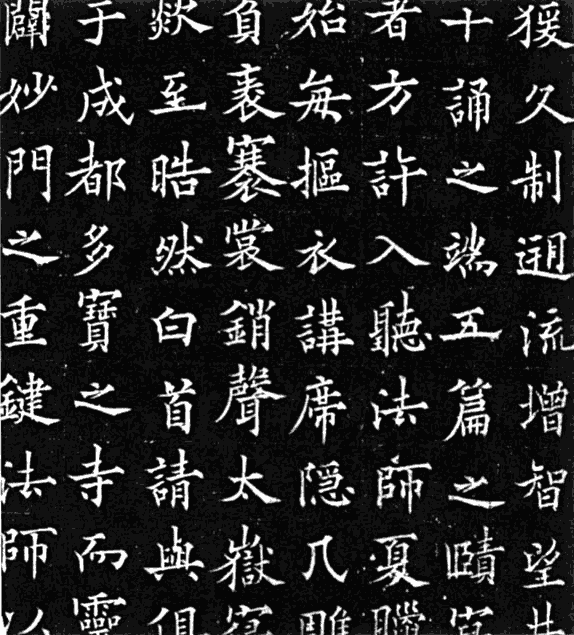 猨久制流增智望
十誦之端五篇之賾
者方許入聽法師夏臘
始每摳衣講席隱几雕
負袠褰裳銷聲太嶽
欻至晧然白首請與俱
于成都多寶之寺而靈
闢妙門之重鍵法師以